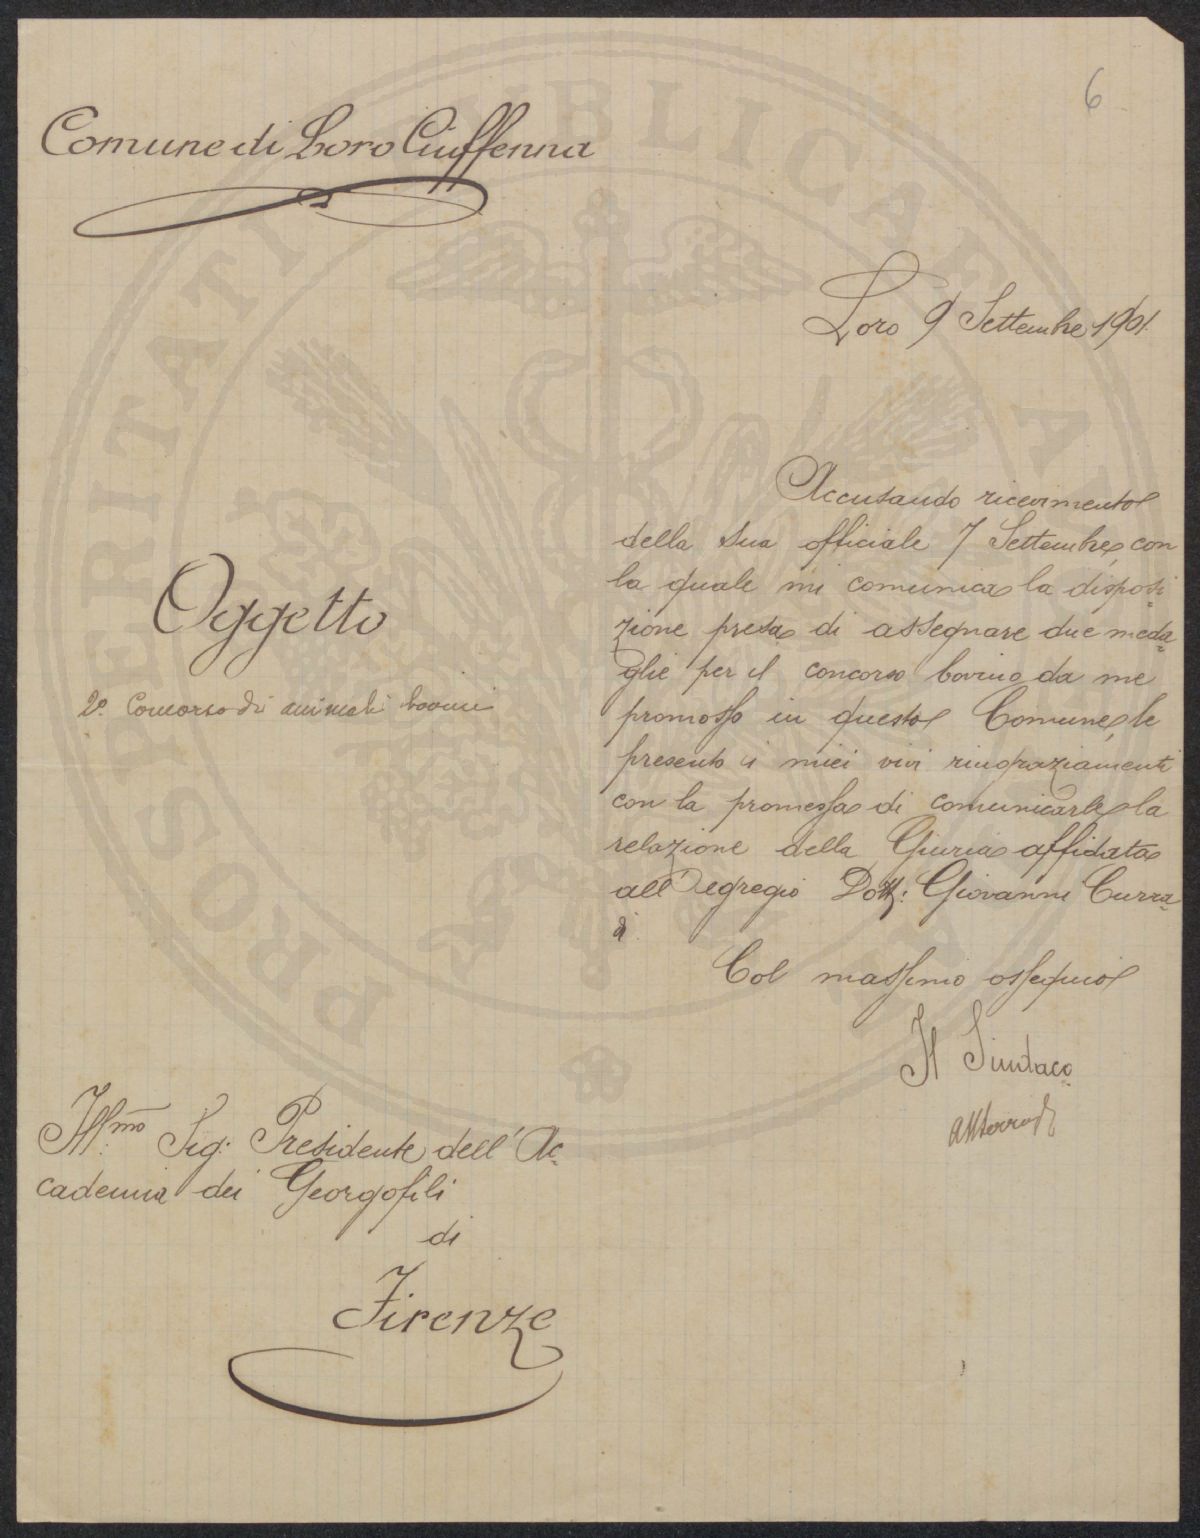 6
Comune di Loro Ciuffenna
Loro 9 Settembre 1901.
Accusando ricevimento
della sua officiale 7 Settembre, con
la quale mi comunica la disposi
zione presa di assegnare due meda-
glie per il concorso bovino da me
promosso in questo Comune, le
presento i miei vivi ringraziamenti
con la promessa di comunicarle la
relazione della Giuria affidata
all'egregio Dott: Giovanni Curra-
di.
Col massimo ossequio
Il Sindaco
Oggetto
2º Concorso di animali bovini
Ill.mo Sig: Presidente dell'Ac-
cademia dei Georgofili
di
Firenze
PROSPERITATI PUBLICAE AUGENDAE